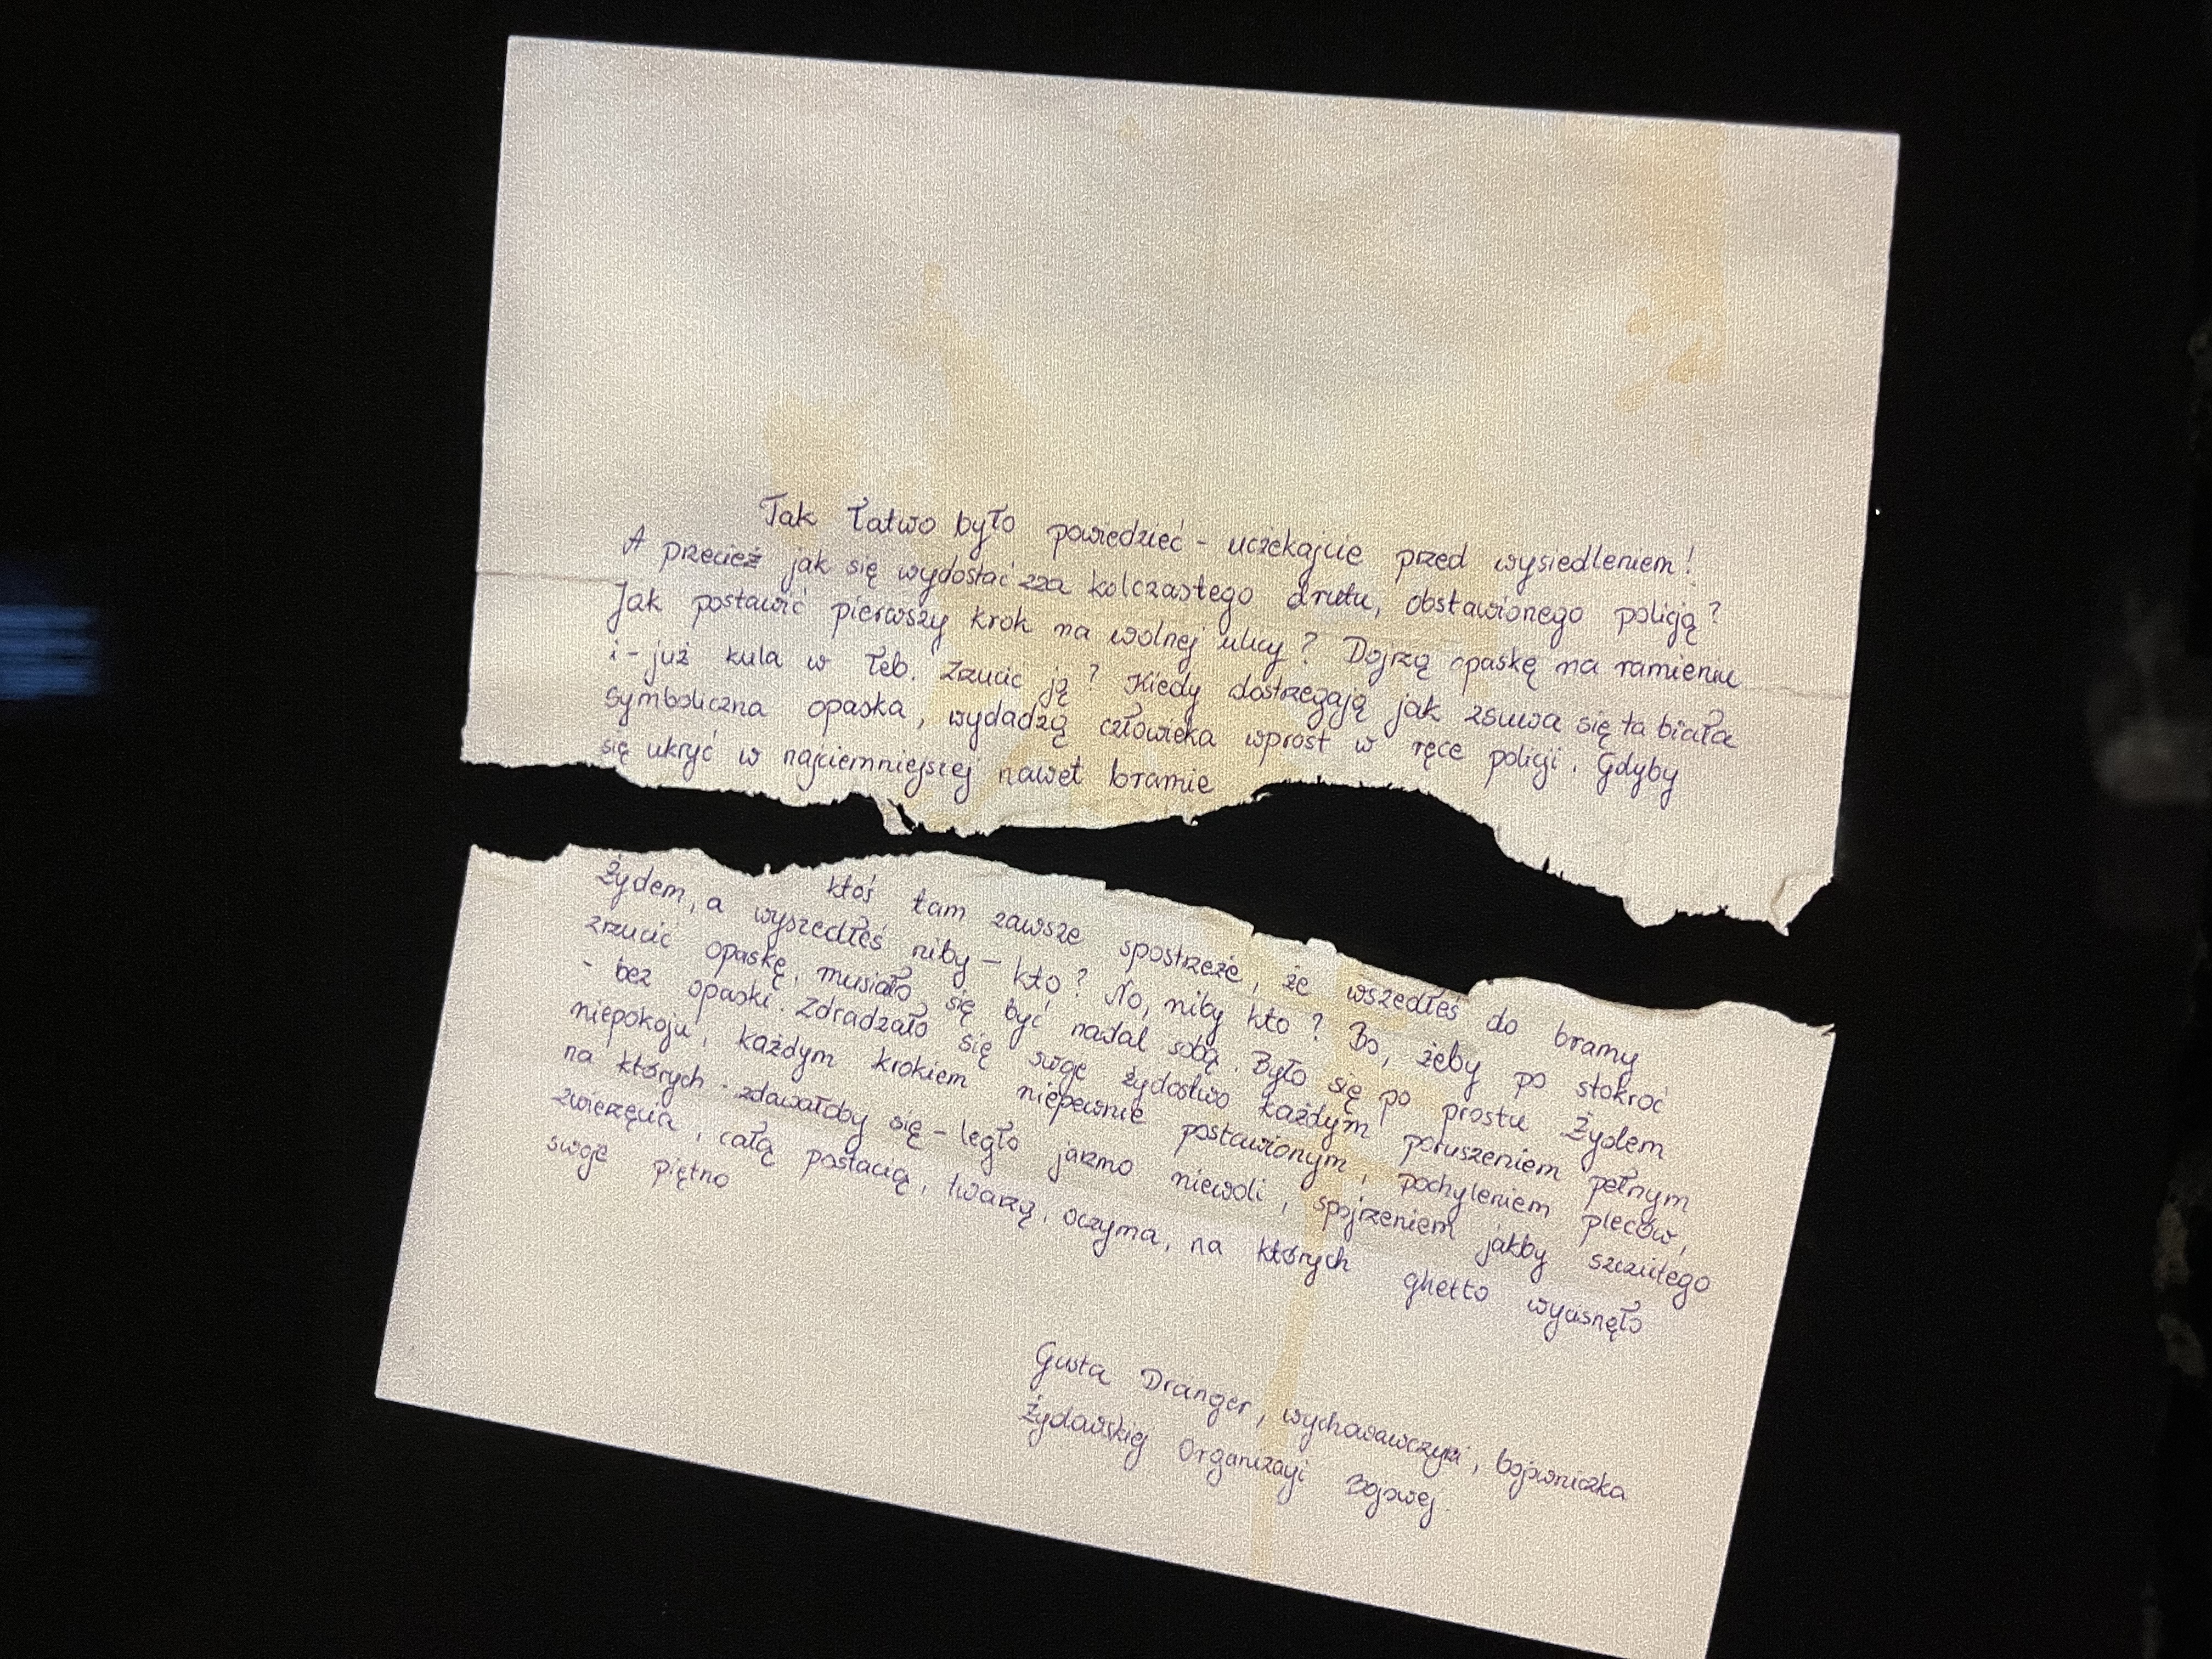 Tak łatwo było powiedzieć - uciekajcie przed wysiedleniem!
A przecież jak się wydostać zza kolczastego drutu, obstawionego policją?
Jak postawić pierwszy krok na wolnej ulicy? Dojrzą opaskę na ramieniu
i - już kula w łeb. Zrzucić ją? Kiedy dostrzegają jak zsuwa się ta biała
symboliczna opaska, wydadzą człowieka wprost w ręce policji. Gdyby
się ukryć w najciemniejszej nawet bramie
ktoś tam zawsze spostrzeże, że wszedłeś do bramy
Żydem, a wyszedłeś niby - kto? No, niby kto? Bo, żeby po stokroć
zrzucić opaskę, musiało się być nadal sobą. Było się po prostu Żydem
- bez opaski. Zdradzało się swoje żydostwo każdym poruszeniem pełnym
niepokoju, każdym krokiem niepewnie postawionym, pochyleniem pleców,
na których - zdawałoby się - legło jarzmo niewoli, spojrzeniem jakby szczutego
zwierzęcia, całą postacią, twarzą, oczyma, na których ghetto wycisnęło
swoje piętno
Gusta Dranger, wychowawczyni, bojowniczka
Żydowskiej Organizacji Bojowej.